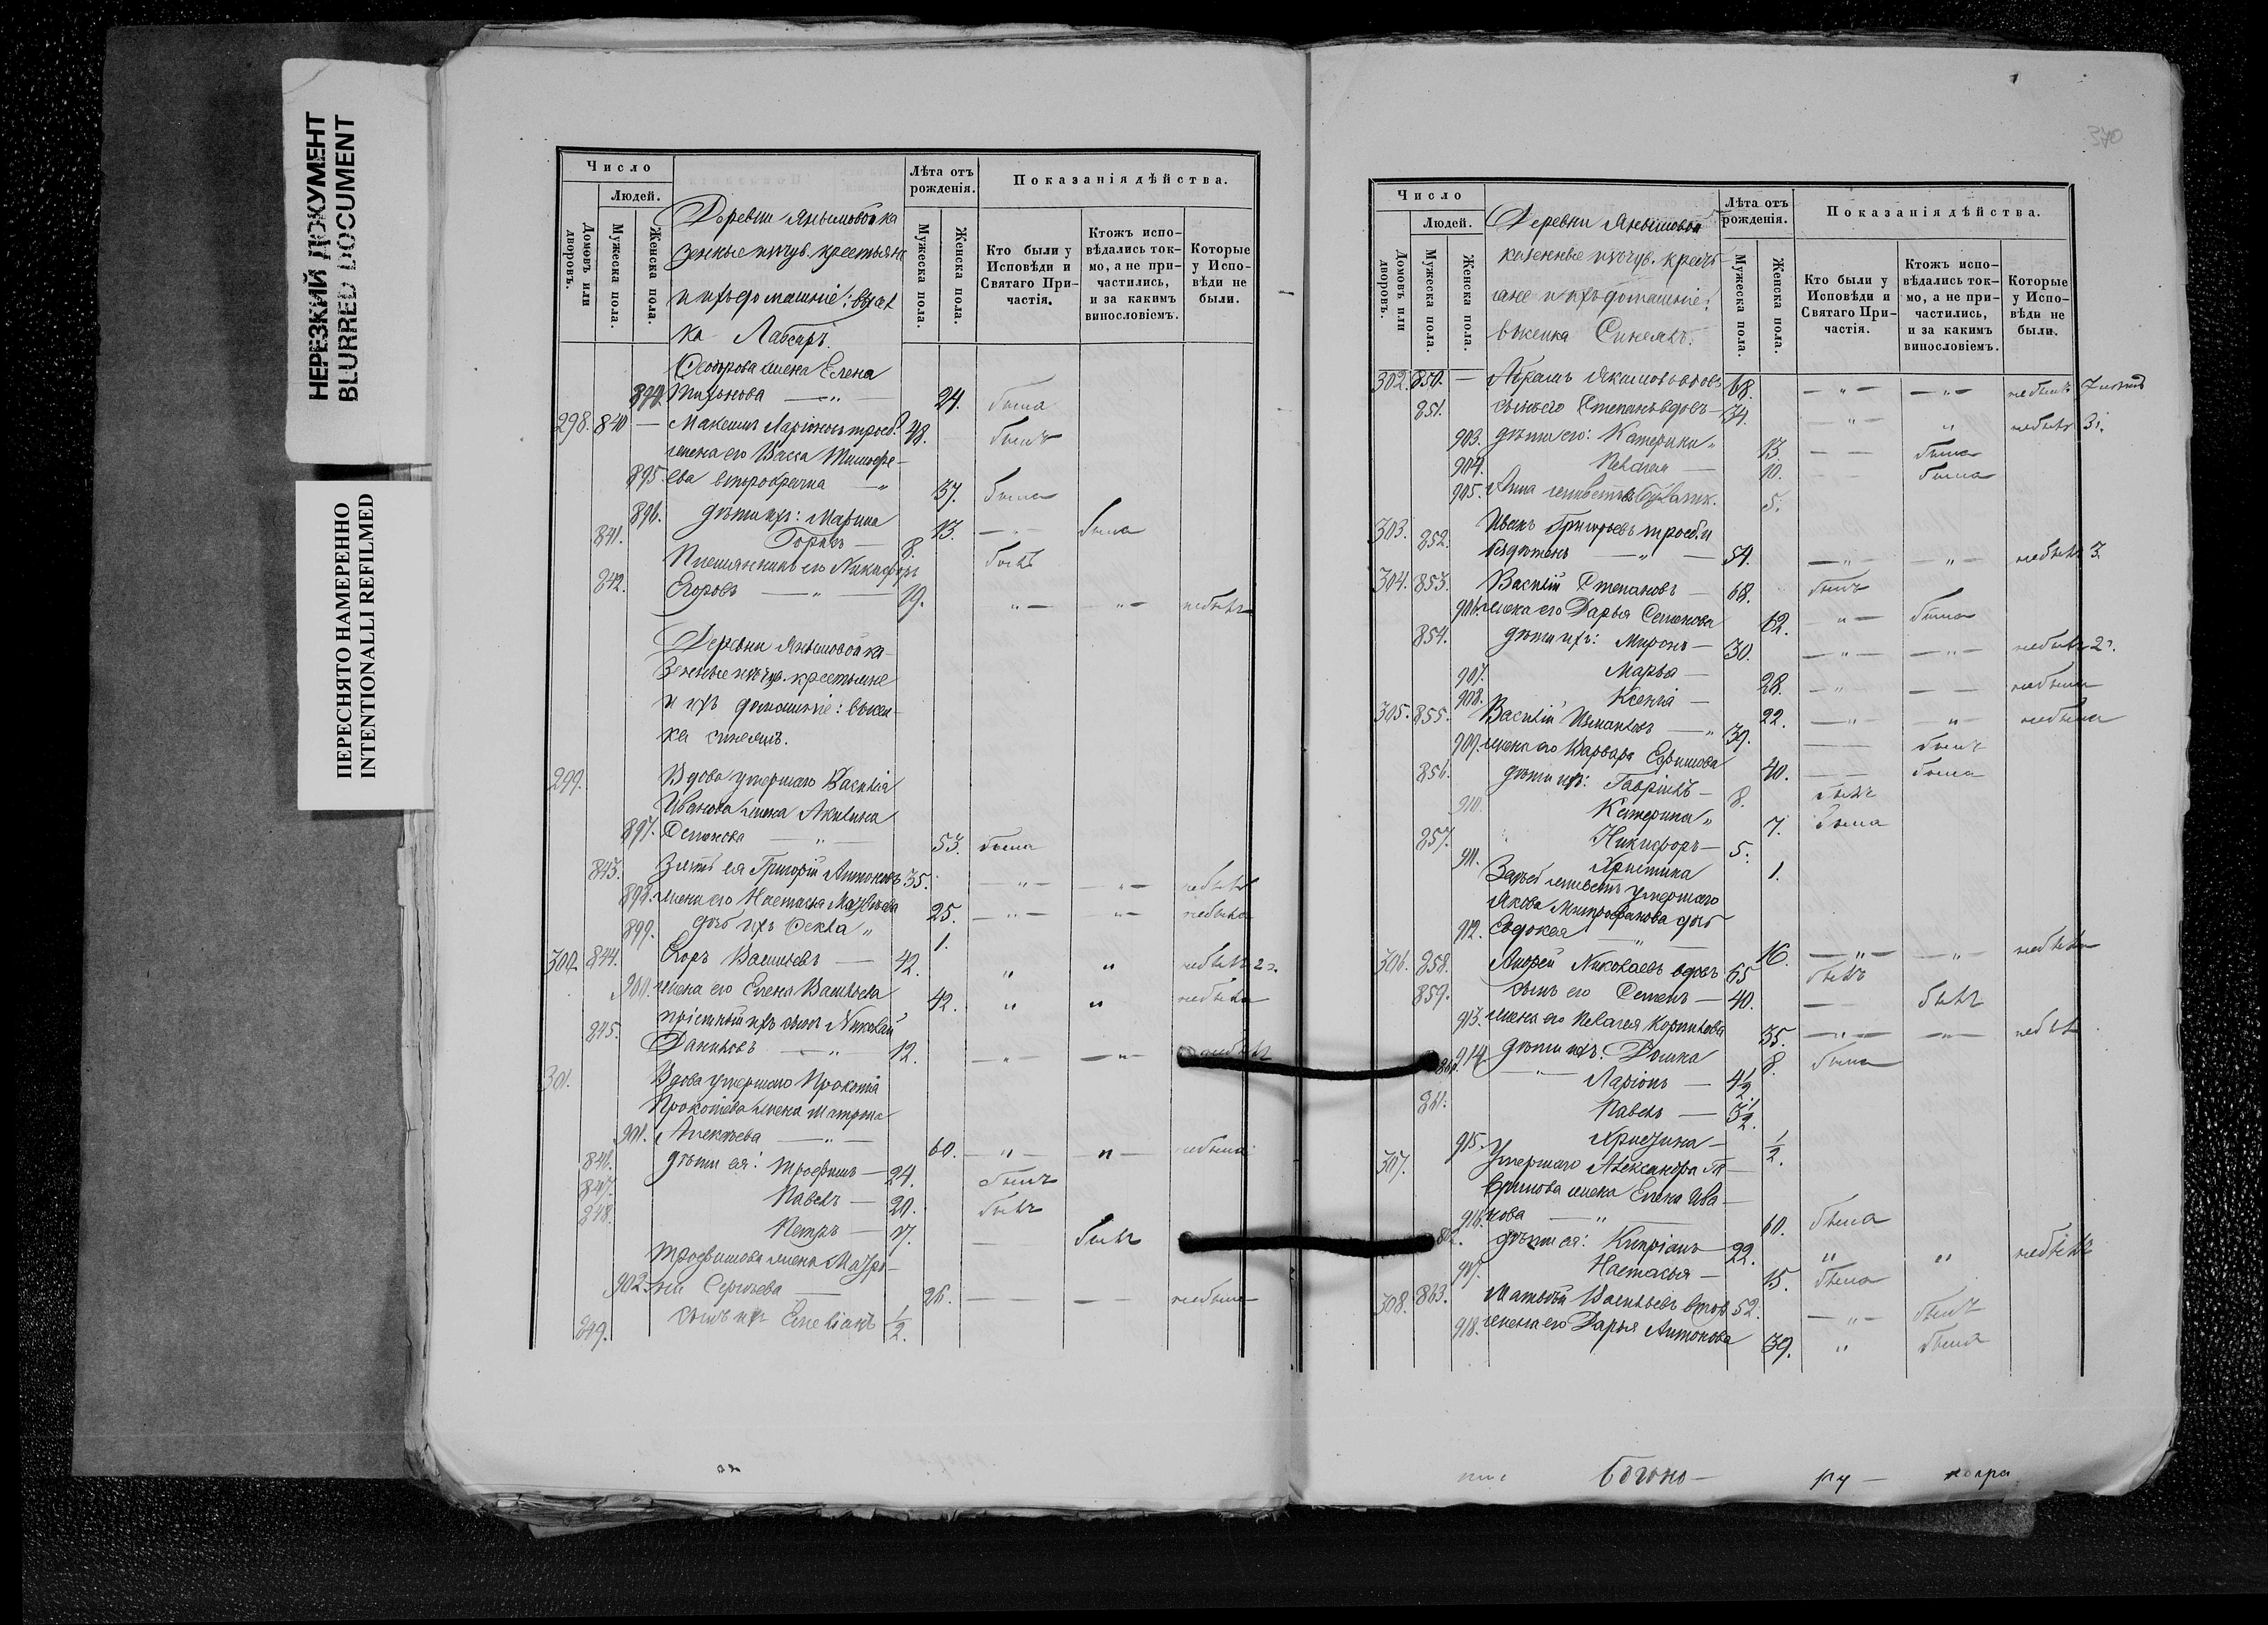 НЕРЕЗКИЙ ДОКУМЕНТ
BLURRED DOCUMENT
ПЕРЕСНЯТО НАМЕРЕННО
INTENTIONALLI REFILMED
Число
Людей.
Домовъ или дворовъ.
Мужеска пола.
Женска пола.
Лѣта отъ рожденія.
Мужеска пола.
Женска пола.
Показанія дѣйства.
Кто были у Исповѣди и Святаго Причастія.
Ктожъ исповѣдались токмо, а не причастились, и за какимъ винословіемъ.
Которые у Исповѣди не были.
Деревни Янымовой ка
зенные крестьян
и ихъ домашніе:
ка Лабсаръ.
жена Елена
894. Тихонова — 24. была
298. 840 — Максимъ Ларіоновъ троеб. 48. былъ
жена его Васса Тимофе-
895. ева второбрачна — 37. была
896. дѣти ихъ: Марина 13. — была
841. — 8. былъ
Племянникъ его Никифоръ
842. Егоровъ — 19. — небылъ
Деревни Янымовой ка-
зенные крестьяне
и ихъ домашніе: высел-
ка
299. Вдова умершаго Василія
Иванова жена Акилина
897. Семенова — 53. была
843. Зять ея Григорій Антоновъ 35. — небылъ
898. жена его Настасья 25. — небыла
899. дочь ихъ Фекла 1.
300. 844. Егоръ Васильевъ — 42. небылъ 2
900. жена его Елена Васильева 42. небыла
пріемный ихъ сынъ Николай
845. Даниловъ — 12. — небылъ
301. Вдова умершаго Прокопія
Прокопіева жена Матрена
901. Алексѣева — 60. — небыла
846. дѣти ея: Трофимъ — 24. былъ
847. Павелъ — 20. былъ
848. Петръ — 17. — былъ
Трофимова жена Мавра-
902. Сергѣева — 26. — небыла
849. сынъ ихъ Емеліанъ 1/2.
370
Число
Людей.
Домовъ или дворовъ.
Мужеска пола.
Женска пола.
Лѣта отъ рожденія.
Мужеска пола.
Женска пола.
Показанія дѣйства.
Кто были у Исповѣди и Святаго Причастія.
Ктожъ исповѣдались токмо, а не причастились, и за какимъ винословіемъ.
Которые у Исповѣди не были.
Деревни Янымовой
казенные крестъ
яне и ихъ домашніе:
302. 850. — Абрамъ Якимовъ вдовъ 68. — небылъ
851. сынъ его Степанъ вдовъ — 34. небылъ 3.
903. дѣти его: Катерина 13. — была
904. Пелагея — 10. — была
905. Анна 5.
303. 852. Иванъ Григорьевъ троеб. и
бездѣтенъ — 54. — небылъ 3
304. 853. Василій Степановъ — 68. былъ
906. жена его Дарья Семенова 62. — была
854. дѣти ихъ: Миронъ — 30. — небылъ 2
907. Марья — 28. — небыла
908. Ксенія — 22. — небыла
305. 855. Василій — 39. — былъ
909. жена его Варвара Ефимова 40. — была
856. дѣти ихъ: Гаврилъ — 8. былъ
910. Катерина 7. была
857. Никифоръ — 5.
911. Христина 1.
умершаго
Якова Митрофанова дочь
912. Евдокея — 16. — небыла
306. 858. Андрей Николаевъ вдовъ 65 былъ
859. сынъ его Семенъ — 40. — былъ
913. жена его Пелагея Корнилова 35. —
914. дѣти ихъ: Домна 8. была
860. Ларіонъ — 4 1/2
861. Павелъ — 3 1/2.
915. Христина — 1/2.
307. Умершаго Александра
жена Елена Ива-
916. нова — 60. была
862. дѣти ея: Кипріанъ 22. небылъ
917. Настасья — 15. была
308. 863. Матвѣй Васильевъ втор. 52. — былъ
918. жена его Дарья Антонова 39. была
ру —